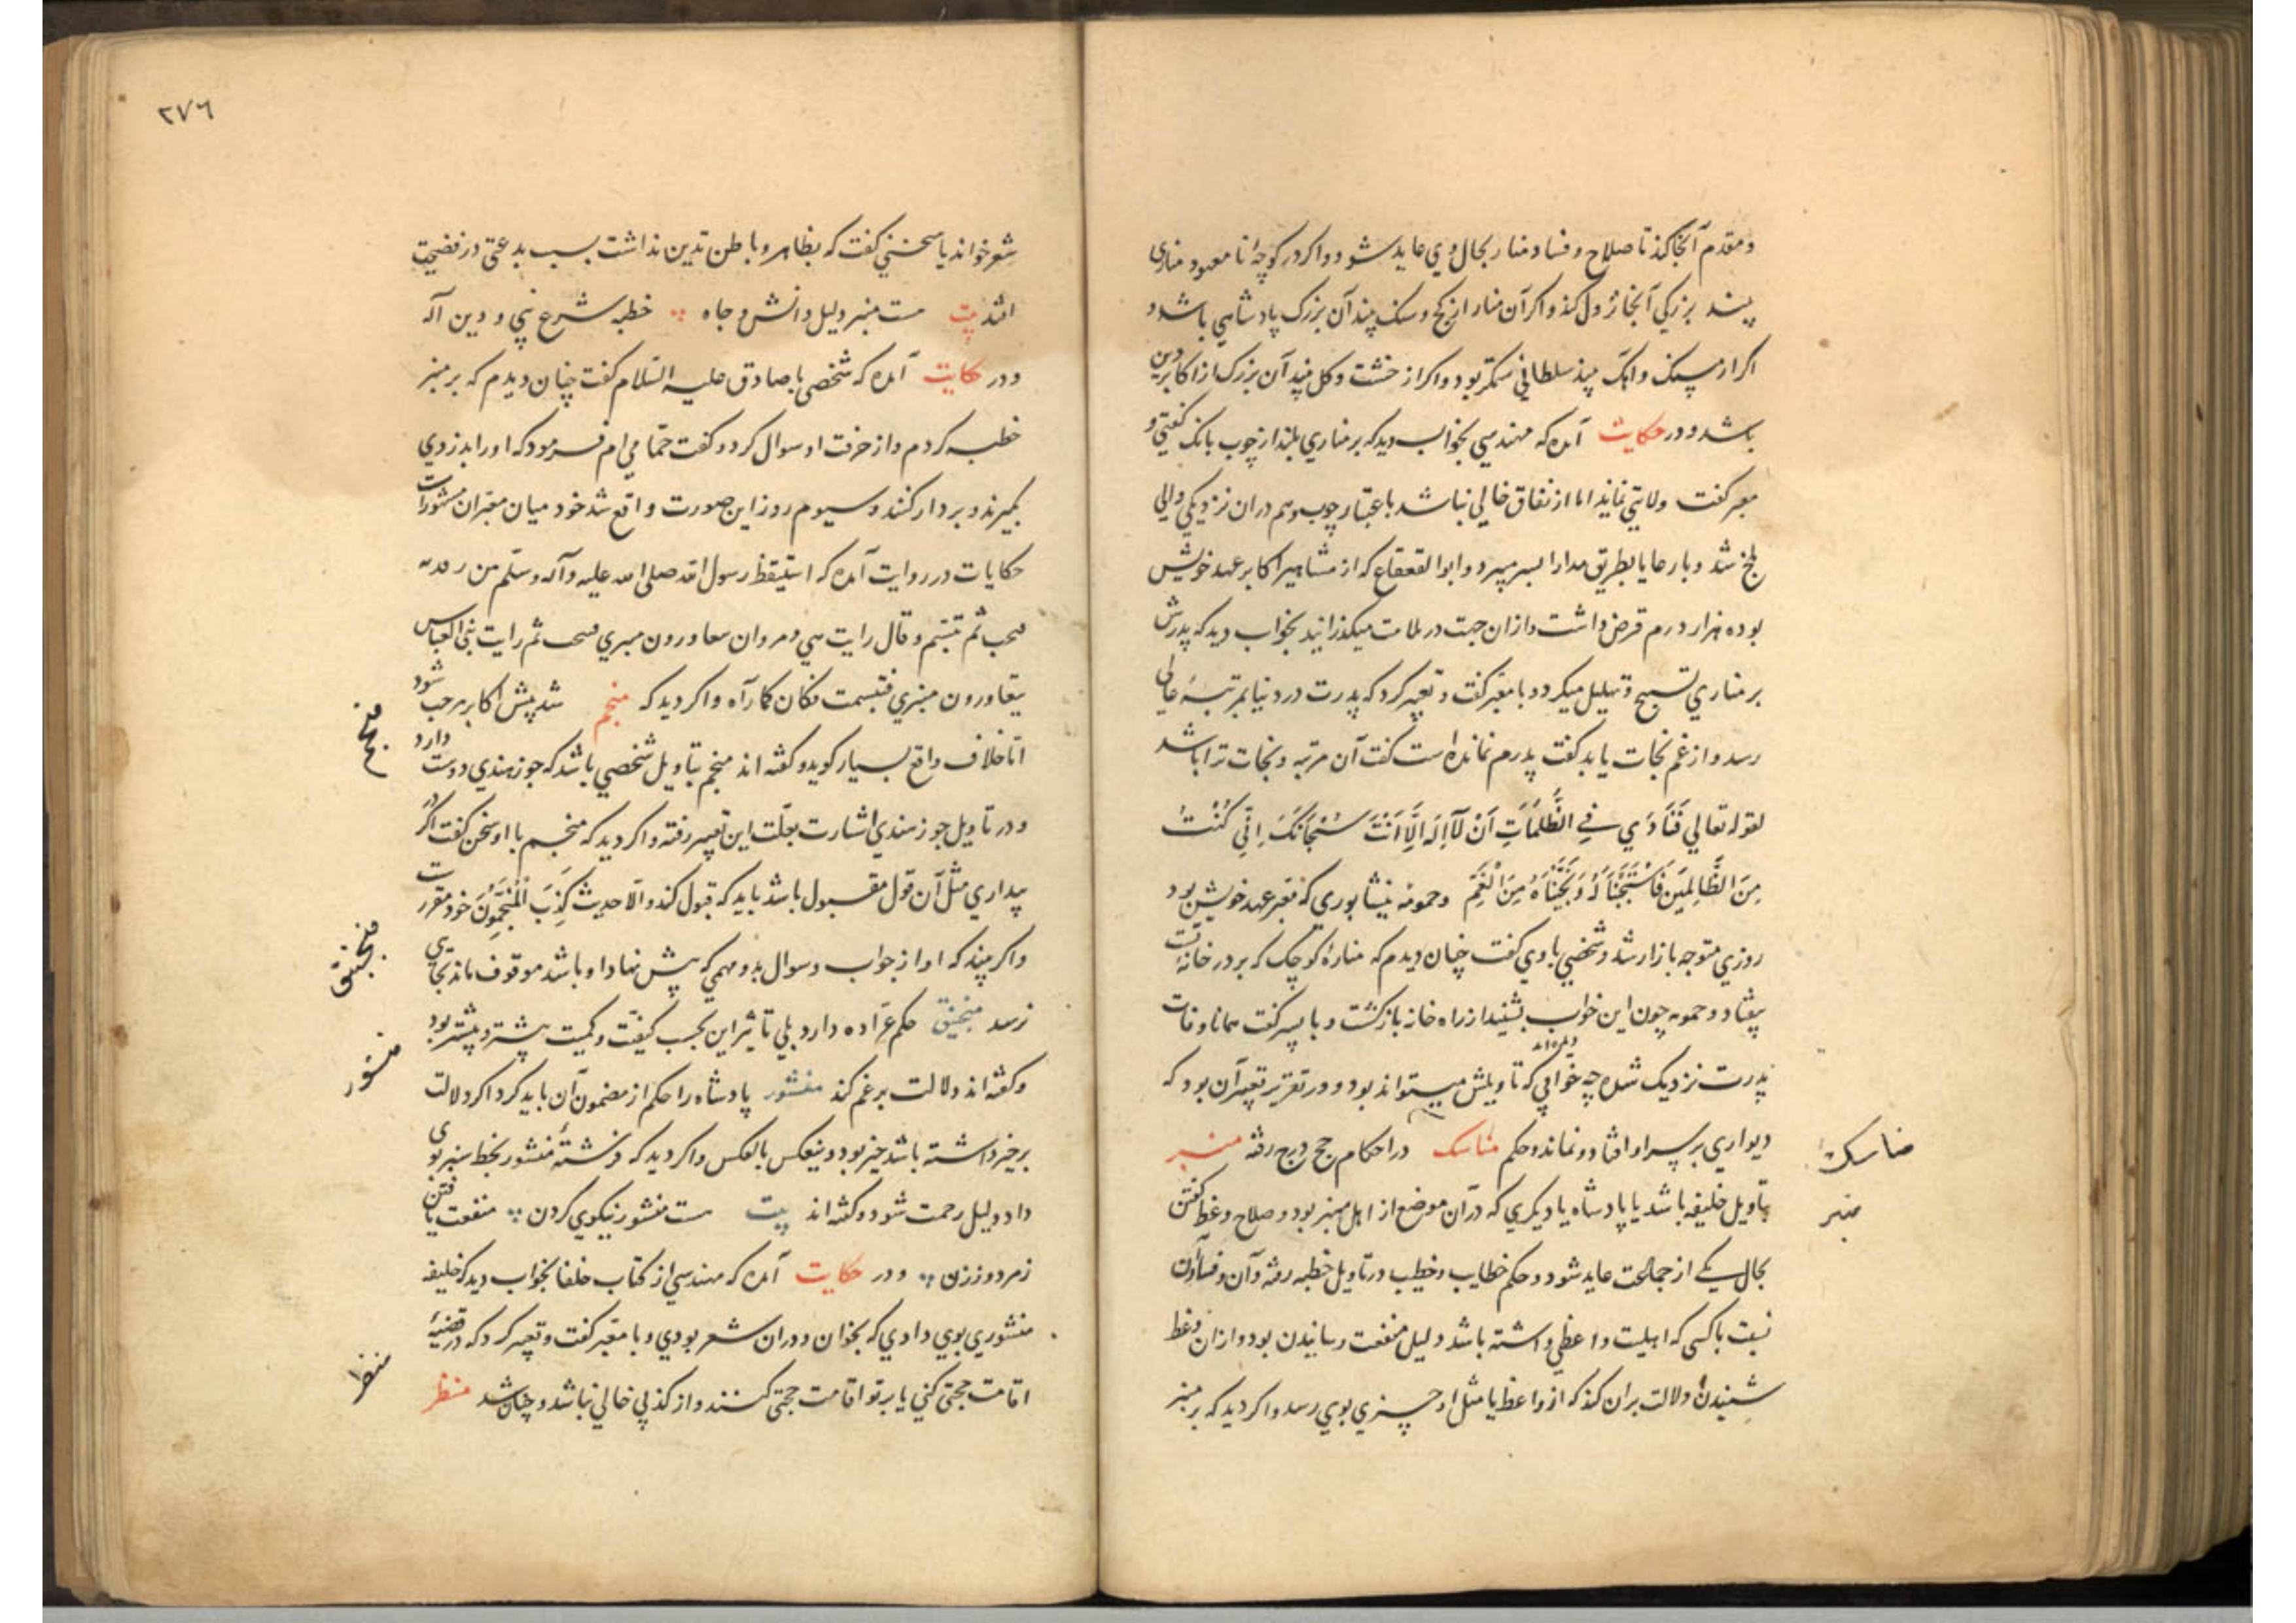 ومقدم آنجا کند تا صلاح و فساد منار بحال وي عايد شود و اکر در کوچهٔ نا معهود مناری
بیند بزرکي آنجا نزول کند و اکر آن منار از کج و سنک بیند آن بزرک پادشاهي باشد و
اکر از سنک و آهک بیند سلطاني ستمکر بود و اکر از خشت و کل بیند آن بزرک از اکابر دین
باشد و در حکایت آمده که مهندسي بخواب دید که بر مناري بلند از چوب بانک کفتي و
معبر کفت ولایتي نماید اما از نفاق خالي نباشد باعتبار چوب و هم دران نزدیکي والي
بلخ شد و با رعایا بطریق مدارا بسر میبرد و ابو القعقاع که از مشاهیر اکابر عهد خویش
بوده هزار درم قرض داشت و ازان جهت در ملامت میکذرانید بخواب دید که پدرش
بر مناري تسبیح و تهلیل میکرد و با معبر کفت و تعبیر کرد که پدرت در دنیا بمرتبهٔ عالي
رسد و از غم نجات یابد کفت پدرم نمانده است کفت آن مرتبه و نجات ترا باشد
لقوله تعالي فَنَادَي فِي الظُّلُمَاتِ اَنْ لَآ اِلَهَ اِلَّا اَنْتَ سُبْحَانَكَ اِنِّي كُنْتُ
مِنَ الظَّالِمِينَ فَاسْتَجَبْنَا لَهُ وَنَجَّيْنَاهُ مِنَ الْغَمِّ وحمویه نیشابوري که معبر عهد خویش بود
روزي متوجه بازار شد و شخصي با وي کفت چنان دیدم که منارهٔ کوچک که بر در خانهٔ تست
بیفتاد و حمویه چون این خواب بشنید از راه خانه بازکشت و با پسر کفت همانا وفات
پدرت نزدیک شده چه خوابي که دیده‌اند تاویلش میتواند بود و در تقریر تعبیر آن بود که
دیواري بر سر او افتاد و نماند و حکم مناسک در احکام حج درج رفته منبر
مناسک
بتاویل خلیفه باشد یا پادشاه یا دیکري که در آن موضع از اهل منبر بود و صلاح وعظ کفتن
منبر
بحال یکے از جماعت عاید شود و حکم خطابت و خطیب در تاویل خطبه رفته و آن و فساد آن
نسبت با کسی که اهلیت واعظي داشته باشد دلیل منفعت رسانیدن بود و ازان وعظ
شنیدن دلالت بران کند که از واعظ یا مثل او چیزي بوي رسد و اکر دید که بر منبر
٢٧٦
شعر خواند یا سخني کفت که بظاهر و باطن تدین نداشت بسبب بدعتي در فضیحت
افتد بیت هست منبر دلیل دانش و جاه خطبه شرع نبي و دین اله
و در حکایت آمده که شخصی با صادق علیه السّلام کفت چنان دیدم که بر منبر
خطبه کردم و از حرفت او سوال کرد و کفت حمّامي ام فرمود که او را بدزدي
بکیرند و بر دار کنند و سیوم روز این صورت واقع شد خود میان معبران مشهورات
حکایات در روایت آمده که استیقظ رسول الله صلی الله علیه وآله وسلّم من رقدته
ثم تبسّم و قال رایت بني مروان یتعاورون منبري ثم رایت بني العباس
یتعاورون منبري فتبسمت فکان کما رآه و اکر دید که منجم شد پیش اکابر مرحب شود
منجم
امّا خلاف واقع بسیار کوید و کفته اند منجم بتاویل شخصي باشد که جوز هندي دوست دارد
و در تاویل جوز هندي اشارت بعلّت این تعبیر رفته و اکر دید که منجم با او سخن کفت اکر در
بیداري مثل آن قول مقبول باشد باید که قبول کند و الّا حدیث کَذِبَ الْمُنَجِّمُونَ خود مقرر ست
و اکر بیند که او از جواب و سوال بد و مهمي که پیش نهاد او باشد موقوف ماند بجایي
منجنیق
نرسد منجنیق حکم عرّاده دارد بلي تاثیر این بحسب کیفیّت و کمیت بیشتر و بیشتر بود
و کفته اند دلالت بر غم کند منشور پادشاه را حکم از مضمون آن باید کرد اکر دلالت
منشور
بر خیر داشته باشد خیر بود و ینعکس بالعکس و اکر دید که فرشتهٔ منشور بخط سبز بوي
داد دلیل رحمت شود و کفته اند بیت هست منشور نیکوي کردن منفعت یافتن
ز مرد و ز زن و در حکایت آمده که مهندسي از کتاب خلفا بخواب دید که خلیفه
منشوري بوي دادي که بخوان و دران شعر بودي و با معبّر کفت و تعبیر کرد که در قضیهٔ
اقامت حجتی کني یا بر تو اقامت حجّتي کنند و از کذبي خالي نباشد و چنان شد منظر
منظر